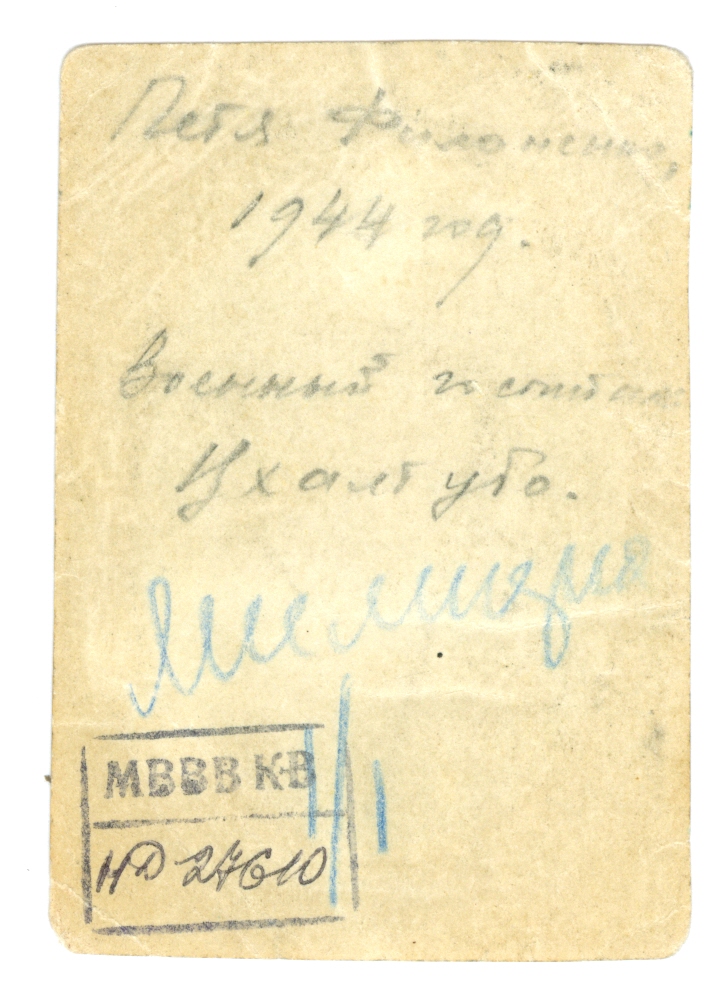 Петя Филоненко,
1944 год.
Военный госпиталь
Цхалтубо.
МВВВКВ
НД 27610